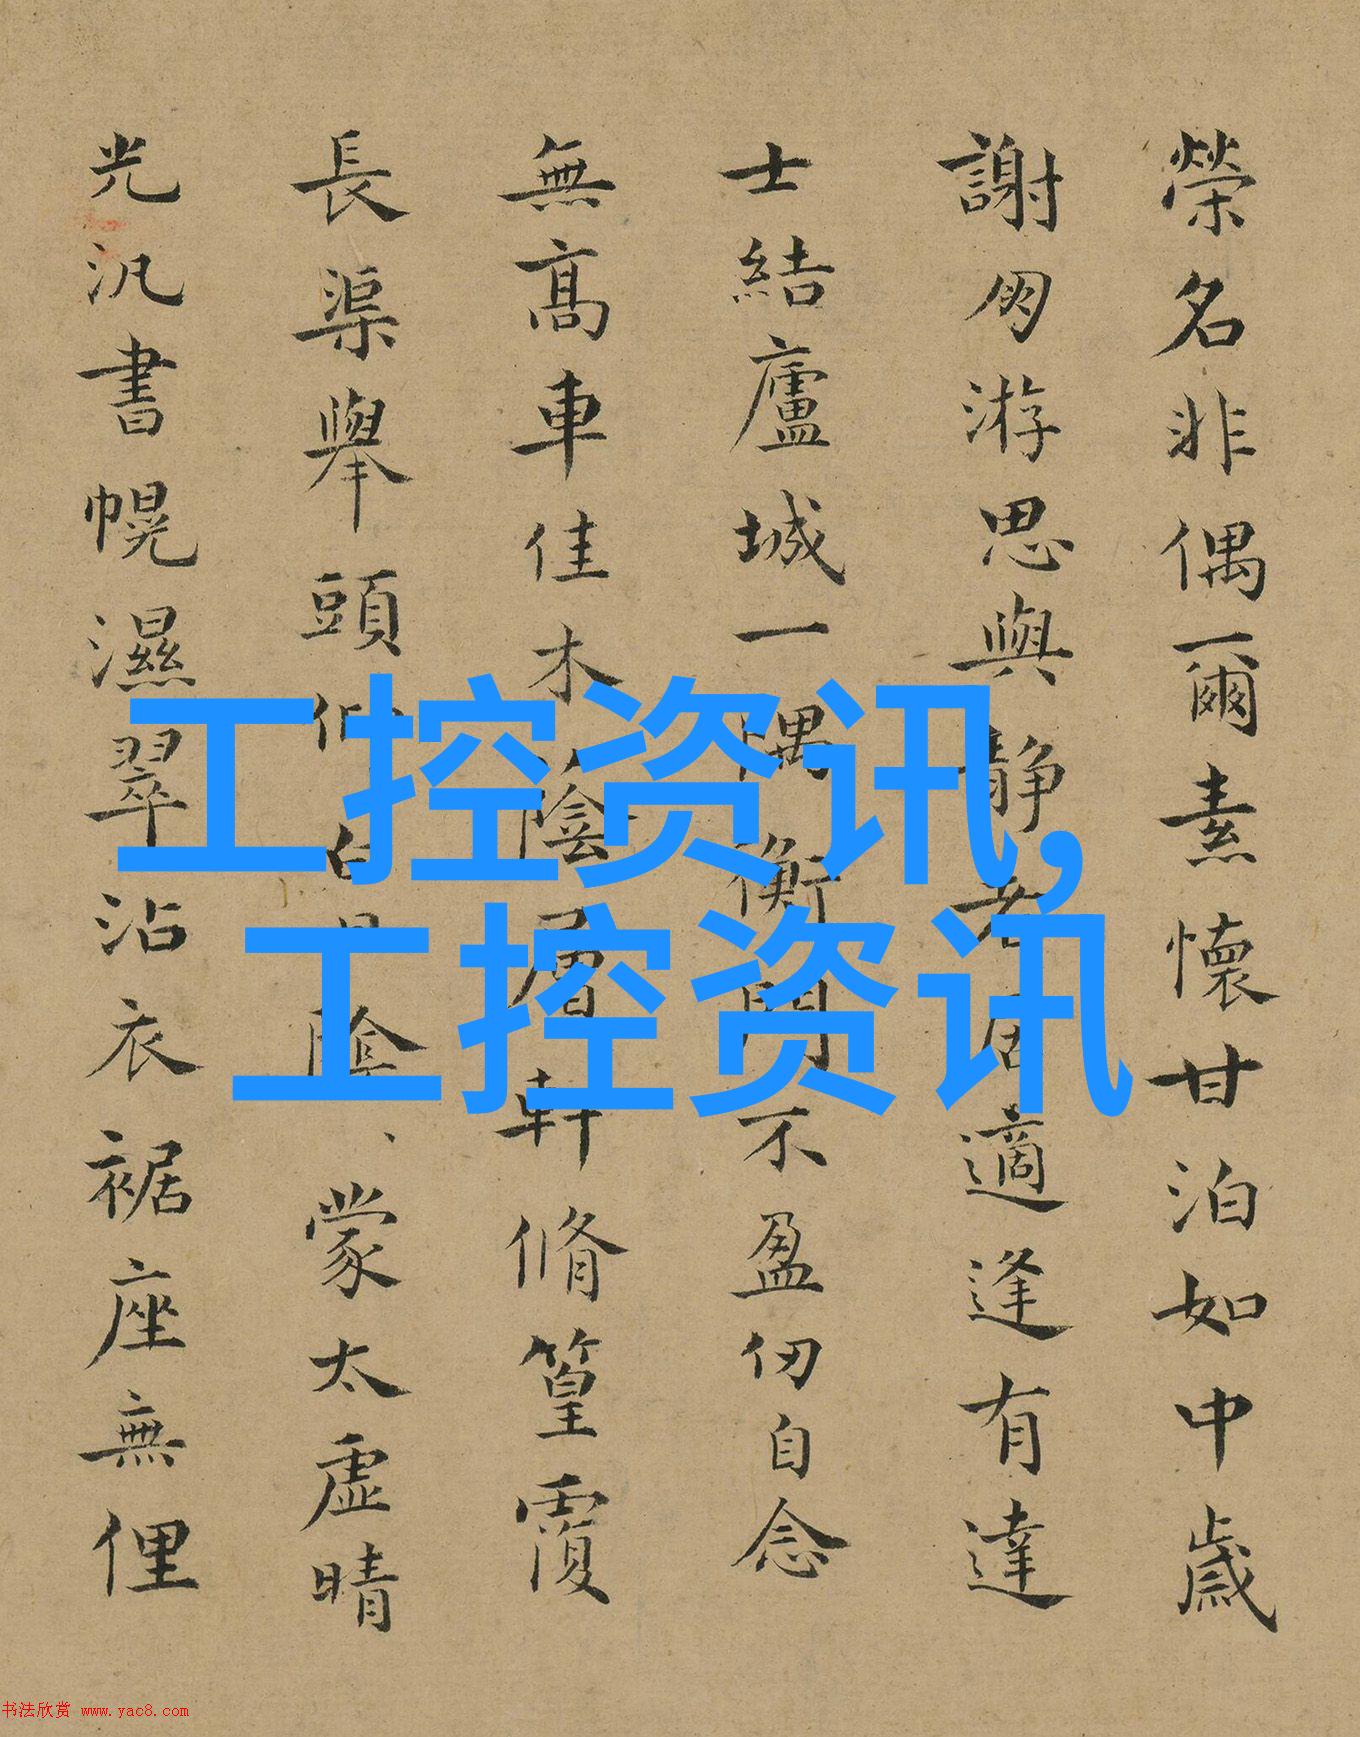 榮名非偶爾素懷甘泊如中歲
謝內游思與靜者居適逢有達
士結廬城一隅衡門不盈仞自念
無高車佳木蔭層軒脩篁覆
長渠舉頭似白日陰、蒙太虛晴
光汎書幌濕翠沾衣裾座無俚
工控资讯,
工控资讯
书法欣赏 www.yac8.com